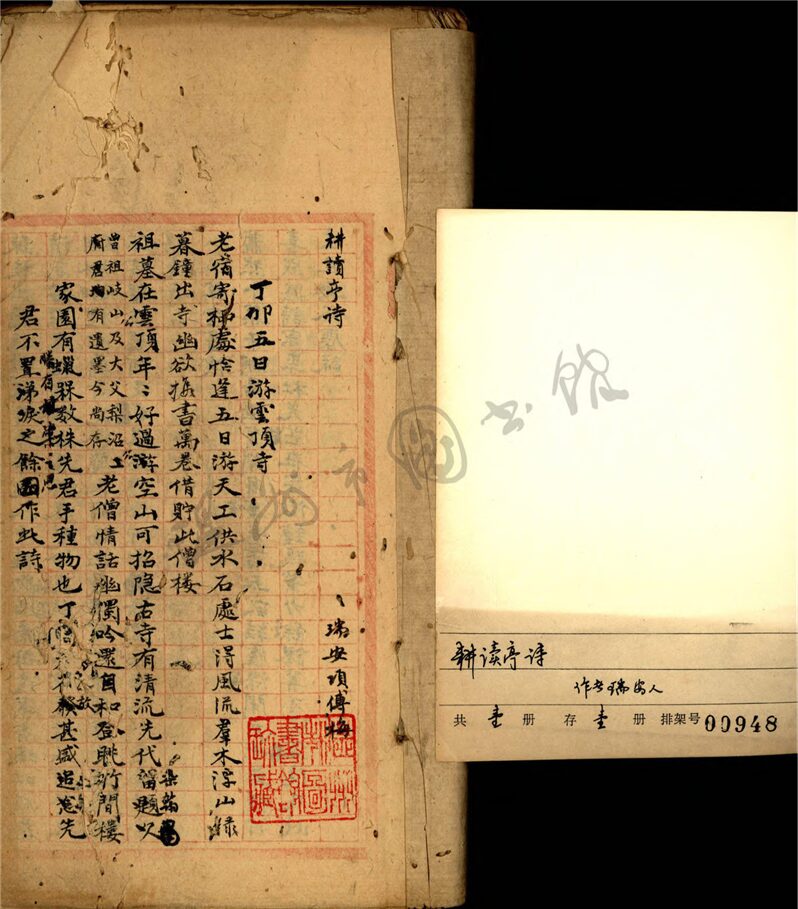 耕讀亭诗
瑞安項傅梅
丁卯五日游雲頂寺
老宿寄禅處恰逢五日游天工供水石處士得風流羣木浮山緑
暮鐘出寺幽欲携書萬卷借貯此僧樓
祖墓在雲頂年〻好過游空山可招隐古寺有清流先代留題久
曽祖岐山公及大父梨沼公
府君均有遺墨今尚存
老僧情話幽獨吟還自和登眺竹間樓
家園有蠟梅数株先君手種物也丁甚盛追念先
君不置涕淚之餘因作此詩
溫州市圖書館
耕读亭诗
作者瑞安人
共 壹 册 存 壹 册 排架号 00948